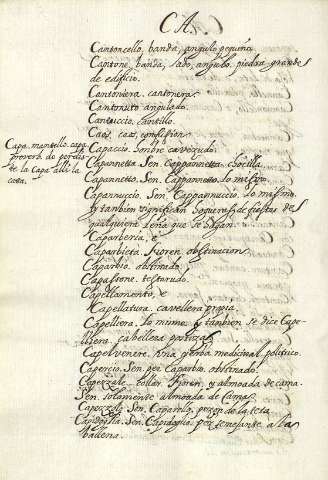 CA.
Cantoncello, banda, angulo pequeño
Cantone, banda, lado, angulo, piedra grande
de edificio.
Cantoniera. cantonera
Cantonuto angulado.
Cantuccio, cantillo
Caos, caos, confusion
Capa. mantello. capa
proverb. de perdis
te la Capa alli la
cata.
Capaccio, hombre cavezudo
Capannetta. Sen. Cappannetta. chocilla.
Capannetto. Sen. Cappannetto. lo mismo.
Capannuccio. Sen. Cappannuccio. lo mismo
y tambien significan hogueras de fiestas de
qualquiera leña que se hagan.
Caparbieria, e
Caparbieta. Fioren. obstinacion
Caparbio. obstinado
Caparbone. testarudo
Capellamento, e
Capellatura. cavellera propia
Capelliera. lo mismo. y tambien se dice Cape
lliera, cabellera postiza
Capelvenere. una yerba medicinal
Capercio. Sen. per Caparbio. obstinado.
Capezzale. collar. Fioren. y almoada de cama.
Sen. solamente almoada de cama.
Capezzolo. Sen. Caparello. pezon de la teta
Capidoglia. Sen. Capidoglio. pez semejante a la
ballena.